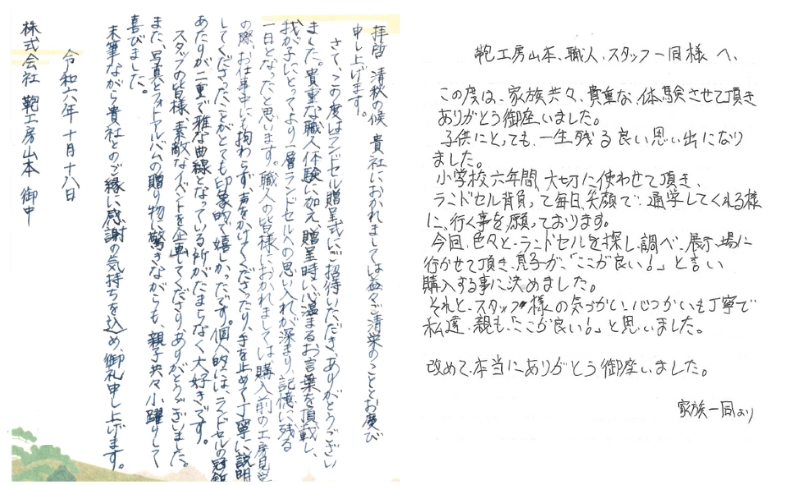 拝啓 清秋の候 貴社におかれましては益々ご清栄のこととお慶び
申し上げます。
さて、この度はランドセル贈呈式にご招待いただき、ありがとうござい
ました。貴重な職人体験に加え、贈呈時の心温まるお言葉を頂戴し、
我が子にとってより一層ランドセルへの思い入れが深まり、記憶に残る
一日となったと思います。職人の皆様におかれましては、購入前の工房見学
の際、お仕事中にも拘わらず、声をかけてくださったり、手を止めて丁寧に説明
してくださったことがとても印象的で嬉しかったです。個人的には、ランドセルの冠鋲
あたりが二重で雅な曲線となっている所がたまらなく大好きです。
スタッフの皆様、素敵なイベントを企画してくださりありがとうございました。
また、写真とフォトアルバムの贈り物に驚きながらも、親子共々小躍りして
喜びました。
末筆ながら貴社とのご縁に感謝の気持ちを込め、御礼申し上げます。
令和六年 十月十八日
株式会社 鞄工房山本 御中
鞄工房山本、職人、スタッフ一同様へ、
この度は、家族共々、貴重な体験させて頂き
ありがとう御座いました。
子供にとっても、一生残る良い思い出になり
ました。
小学校六年間、大切に使わせて頂き、
ランドセル背負って毎日笑顔で、通学してくれる様
に、行く事を願っております。
今回、色々とランドセルを探し、調べ、展示場に
行かせて頂き、息子が、「ここが良い!」と言い
購入する事に決めました。
それと、スタッフ様の気づかい、心づかいも丁寧で
私達、親も、「ここが良い!」と思いました。
改めて、本当にありがとう御座いました。
家族一同より